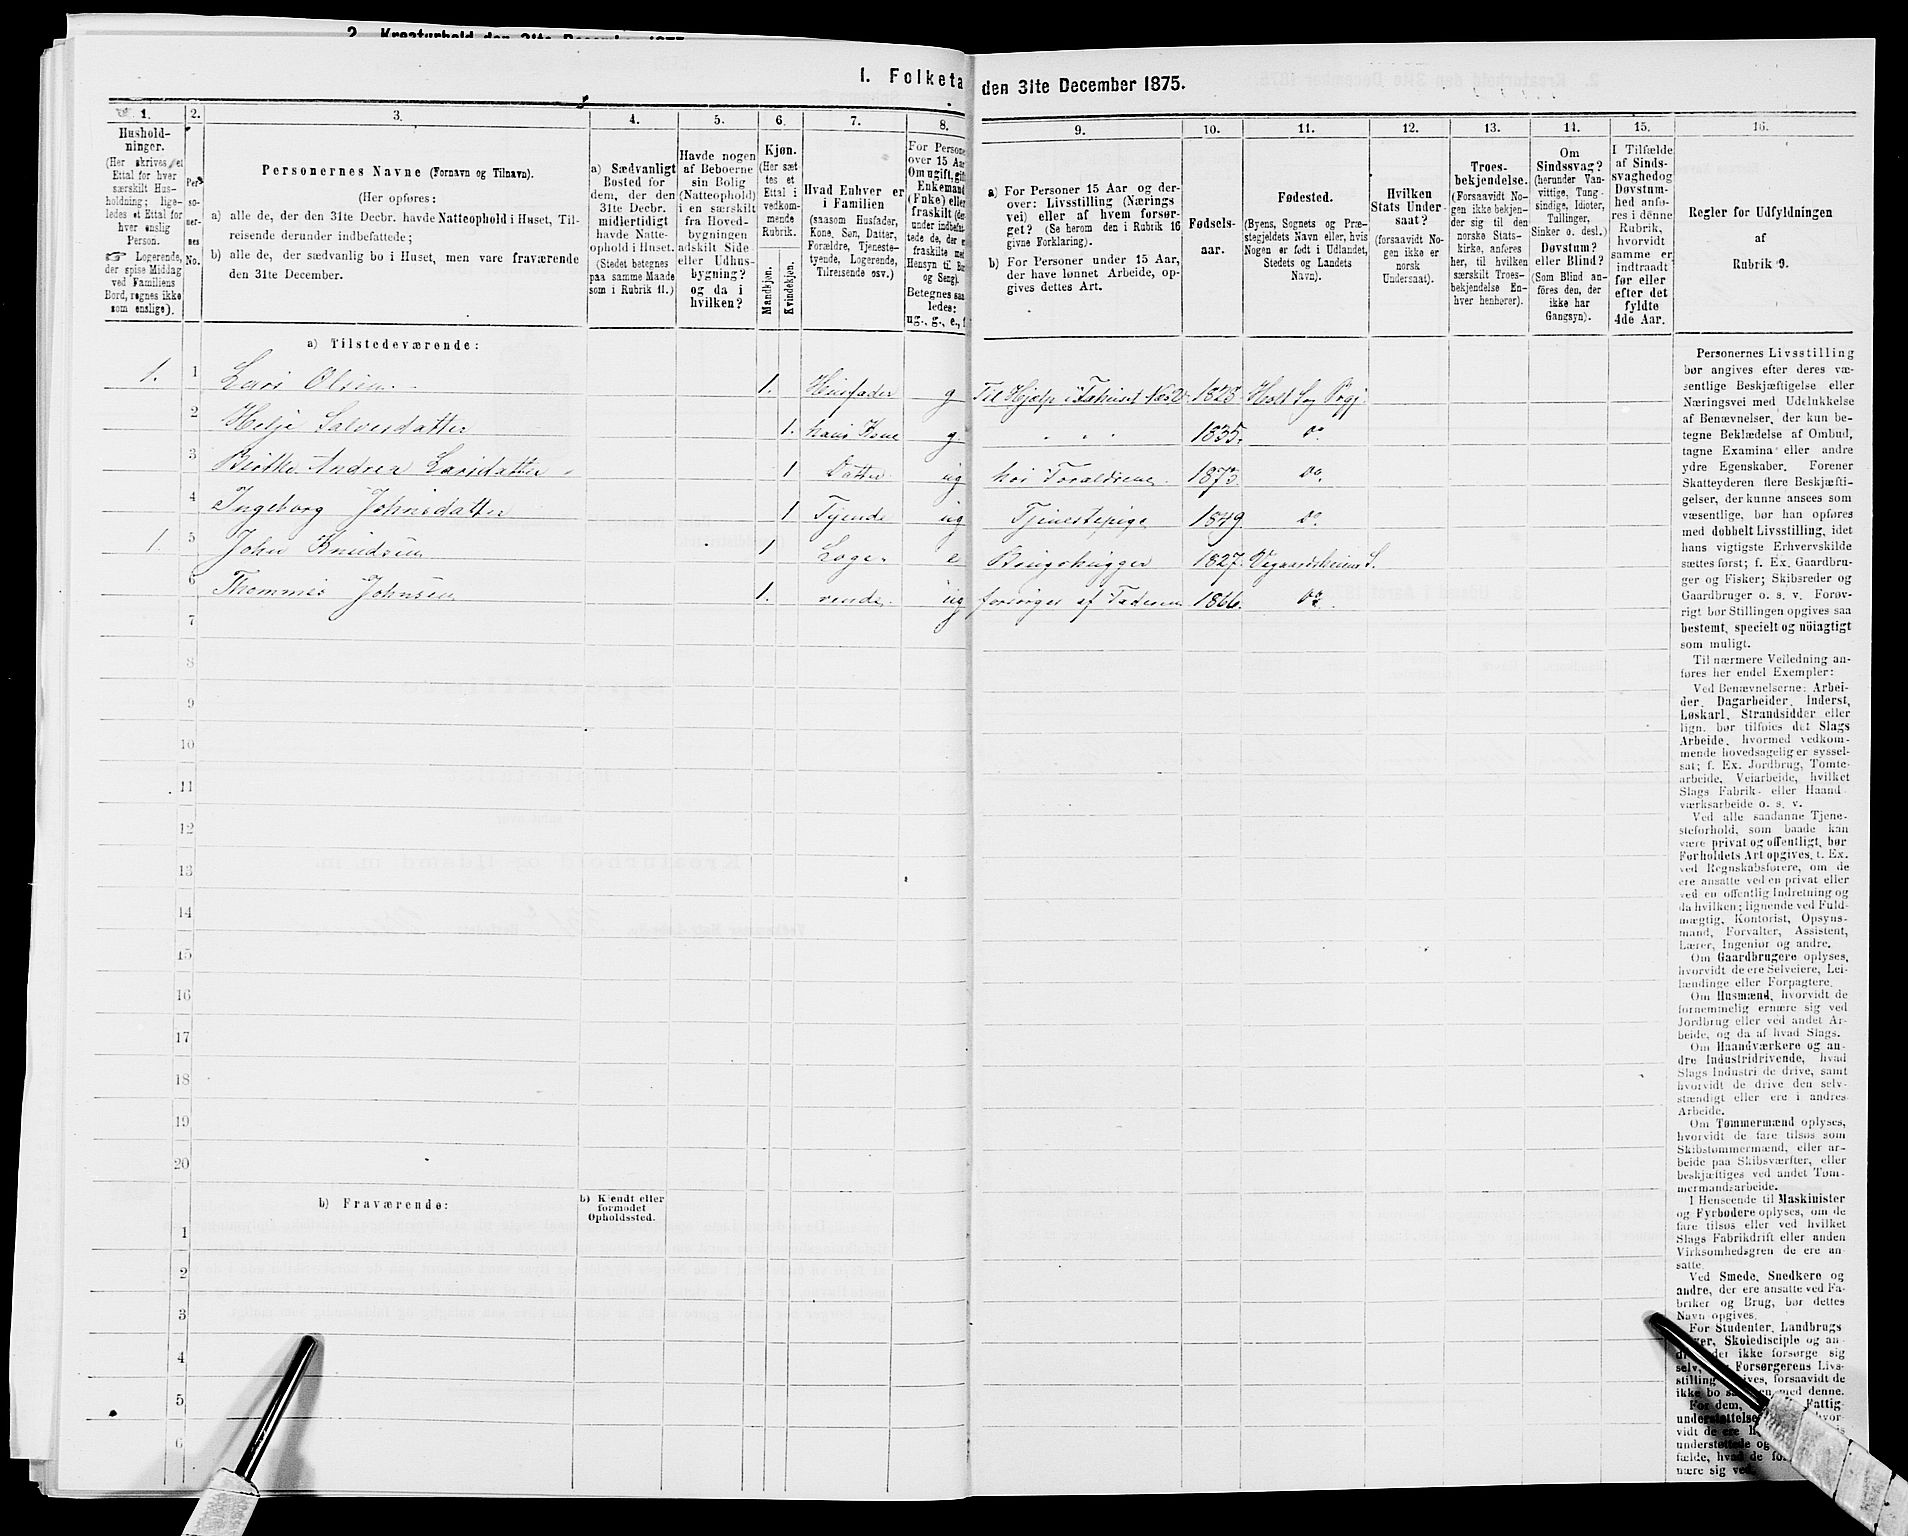 2. Kreaturhold den 31te December 1875
1. Folketa
den 31te December 1875.
1.
Hushold-
ninger.
(Her skrives et
Ettal for hver
særskilt Hus-
holdning; lige-
ledes et Ettal for
hver enslig
Person.
☞ Logerende,
der spise Middag
ved Familiens
Bord, regnes ikke
som enslige).
2.
Per-
so-
ner-
nes
No.
3.
Personernes Navne (Fornavn og Tilnavn).
(Her opføres:
a) alle de, der den 31te Decbr. havde Natteophold i Huset, Til-
reisende derunder indbefattede;
b) alle de, der sædvanlig bo i Huset, men vare fraværende
den 31te December.
4.
a) Sædvanligt
Bosted for
dem, der den
31te Decbr.
midlertidigt
havde Natte-
ophold i Huset.
(Stedet betegnes
paa samme Maade
som i Rubrik 11.)
5.
Havde nogen
af Beboerne
sin Bolig
(Natteophold)
i en særskilt
fra Hoved-
bygningen
adskilt Side-
eller Udhus-
bygning?
og da i
hvilken?
6.
Kjøn.
(Her sæt-
tes et
Ettal i
vedkom-
mende
Rubrik.
Mandkjøn.
Kvindekjøn.
7.
Hvad Enhver er
i Familien
(saasom Husfader,
Kone, Søn, Datter,
Forældre, Tjeneste-
tyende, Logerende,
Tilreisende osv.)
8.
For Persone
over 15 Aar
Om ugift, gift
Enkemand
(Enke) eller
fraskilt (der-
under indbefat-
tede de, der er
fraskilte med
Hensyn til Bor
og Seng).
Betegnes saa
ledes:
ug., g., e., f
9.
a) For Personer 15 Aar og der-
over: Livsstilling (Nærings
vei) eller af hvem forsør-
get? (Se herom den i Rubrik 16
givne Forklaring).
b) For Personer under 15 Aar,
der have lønnet Arbeide, op-
gives dettes Art.
10.
Fødsels-
aar.
11.
Fødested.
(Byens, Sognets og Præ-
stegjeldets Navn eller, hvis
Nogen er født i Udlandet,
Stedets og Landets
Navn).
12.
Hvilken
Stats Under
saat?
(forsaavidt No-
gen ikke er
norsk
Undersaat).
13.
Troes-
bekjendelse.
(Forsaavidt No-
gen ikke bekjen-
der sig til den
norske Stats-
kirke, anføres
her, til hvilken
særskilt Troes-
bekjendelse En-
hver henhører).
14.
Om
Sindssvag?
(herunder Van-
vittige, Tung-
sindige, Idioter,
Tullinger,
Sinker o. desl.)
Døvstum?
eller Blind?
(Som Blind an-
føres den, der
ikke har
Gangsyn).
15.
I Tilfælde
af Sinds-
svaghed og
Døvstum-
hed anfø-
res i denne
Rubrik,
hvorvidt
samme er
indtraadt
før eller
efter det
fyldte
4de Aar.
16.
Regler for Udfyldningen
af
Rubrik 9.
a) Tilstedeværende:
1. 1 Lars Olsen 1. Husfader g Til Hjælp i 1823 Holt Sog Prgj.
2 Helje Salvesdatter 1. hans Kone g. " " " 1835. Do
3 Birthe Andrea Larsdatter 1 Datter ug hos Forældrene. 1873. Do.
4 Ingeborg Johnsdatter 1 Tyende ug Tjenestepige 1849 Do
1. 5 John Knudsen 1 Loge- e 1827. Vegaardsheiens S.
6 Thommes Johnsen 1. rende. ug forsørges af Faderen 1866. Do.
7
8
9
10
11
12
13
14
15
16
17
18
19
20
b) Fraværende:
b) Kjendt eller
formodet
Opholdssted.
1
2
3
4
5
6
Personernes Livsstilling
bør angives efter deres væ-
sentlige Beskjæftigelse eller
Næringsvei med Udelukkelse
af Benævnelser, der kun be-
tegne Beklædelse af Ombud,
tagne Examina eller andre
ydre Egenskaber. Forener
Skatteyderen flere Beskjæfti-
gelser, der kunne ansees som
væsentlige, bør han opføres
med dobbelt Livsstilling, idet
hans vigtigste Erhvervskilde
sættes først; f. Ex. Gaardbru-
ger og Fisker; Skibsreder og
Gaardbruger o. s. v. Forøv-
rigt bør Stillingen opgives saa
bestemt, specielt og nöiagtigt
som muligt.
Til nærmere Veiledning an-
føres her endel Exempler:
Ved Benævnelserne: Arbei-
der, Dagarbeider, Inderst,
Løskarl, Strandsidder eller
lign. bør tilføies det Slags
Arbeide, hvormed vedkom-
mende hovedsagelig er syssel-
sat; f. Ex. Jordbrug, Tomte-
arbeide, Veiarbeide, hvilket
Slags Fabrik- eller Haand-
værksarbeide o. s. v.
Ved alle saadanne Tjene-
steforhold, som baade kan
være privat og offentligt, bør
Forholdets Art opgives, f. Ex.
ved Regnskabsførere, om de
ere ansatte ved en privat eller
ved en offentlig Indretning og
da hvilken; lignende ved Fuld-
mægtig, Kontorist, Opsyns-
mand, Forvalter, Assistent,
Lærer, Ingeniør og andre.
Om Gaardbrugere oplyses,
hvorvidt de ere Selveiere, Lei-
lændinge eller Forpagtere.
Om Husmænd, hvorvidt de
fornemmelig ernære sig ved
Jordbrug eller ved andet Ar-
beide, og da af hvad Slags.
Om Haandværkere og an-
dre Industridrivende, hvad
Slags Industri de drive, samt
hvorvidt de drive den selv-
stændigt eller ere i andres
Arbeide.
Om Tømmermænd oplyses,
hvorvidt de fare tilsøs som
Skibstømmermænd, eller ar-
beide paa Skibsværfter, eller
beskjæftiges ved andet Tøm-
mermandsarbeide.
I Henseende til Maskinister
og Fyrbødere oplyses, om de
fare tilsøs eller ved hvilket
Slags Fabrikdrift eller anden
Virksomhedsgren de ere an-
satte.
Ved Smede, Snedkere og
andre, der ere ansatte ved Fa-
briker og Brug, bør dettes
Navn opgives.
For Studenter, Landbrugs
Skoledisciple og an-
det ikke forsørge sig
selv, Forsørgerens Livs-
stilling forsaavidt de
ikke bo med denne.
For dem, Fattig-
understøttelse hvor-
vidt de ere
understøttede og
fælde, hvad de
nære sig ved.